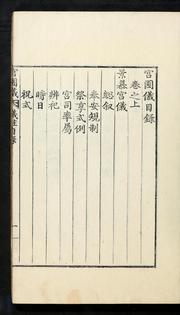 宮園儀目錄
卷之上
景慕宮儀
總叙
奉安規制
祭享式例
宮司率屬
辨祀
時日
祝式